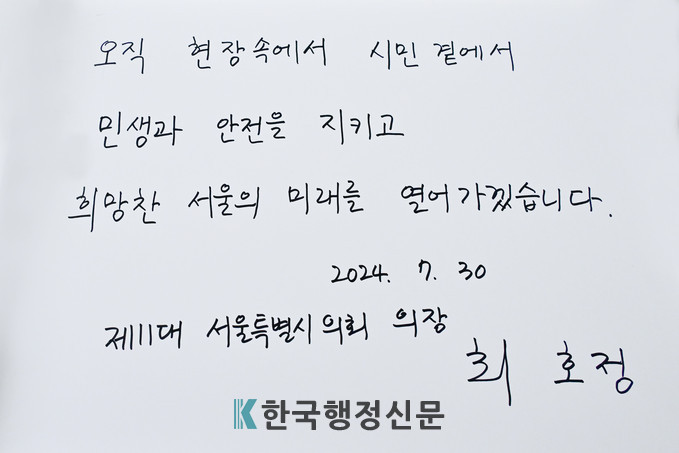 오직 현장속에서 시민 곁에서
민생과 안전을 지키고
희망찬 서울의 미래를 열어가겠습니다.
2024. 7. 30
제11대 서울특별시의회 의장
최 호정
한국행정신문